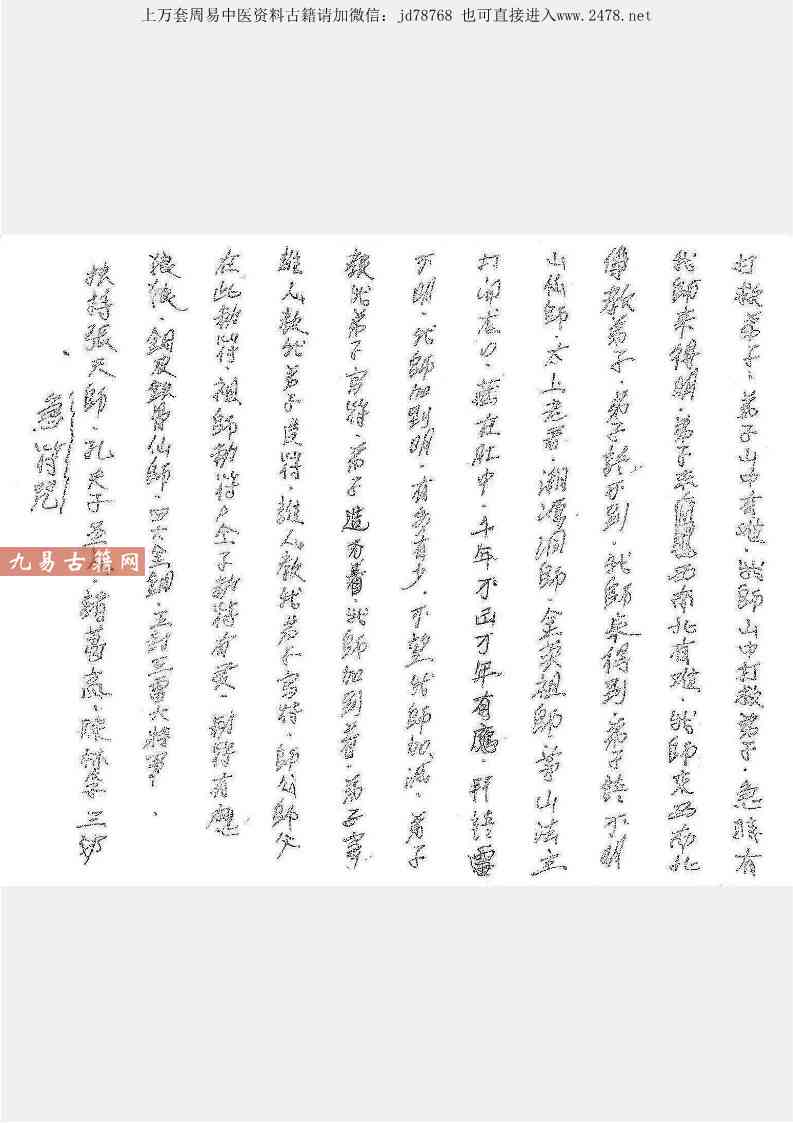 上万套周易中医资料古籍请加微信：jd78768 也可直接进入www.2478.net
打救弟子．弟子山中有难．我師山中打救弟子．急時有
我師來得明．弟子東西南北有难．我師來西南北
傳教弟子．弟子請不到．我師來得到．弟子請不明
山仙師．太上老君．湖源洞師．金英祖師．茅山法主
打開虎口．藏在肚中．千年不山万年有應．雷
不明．我師加到明．有多有少．不望我師加減．弟子
教我弟子寫符．弟子造为看．我師加到看．弟子寫
誰人教我弟子度符．誰人教我弟子寫符．師公師父
在此教符．祖師教符．全子教符有灵．
狼狼．銅皮鉄骨仙師．四大金鋼．立封三雷大將軍．
扶持張天師．孔夫子．諸葛高．陳林李三奶
符咒
九易古籍网